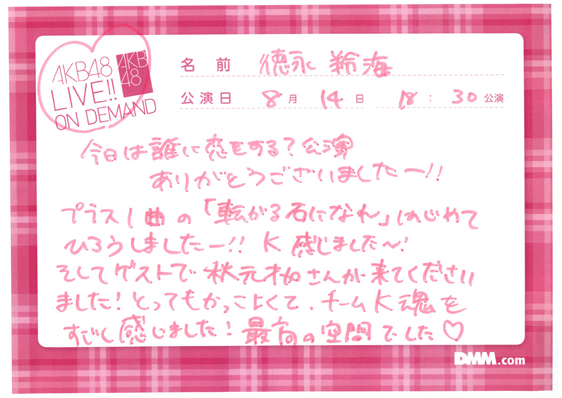 AKB48
LIVE!!
ON DEMAND
AKB
48
名前 徳永羚海
公演日 8月14日 18:30公演
今日は誰に恋をする?公演
ありがとうございましたー!!
プラス1曲の「転がる石になれ」はじめて
ひろうしましたー!! K 感じました〜!
そしてゲストで秋元才加さんが来てください
ました!とってもかっこよくて、チームK魂を
すごく感じました!最高の空間でした♡
DMM.com